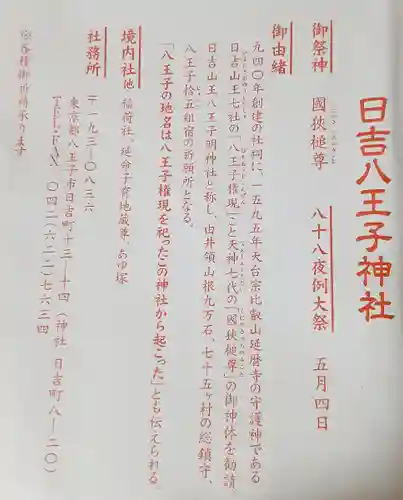 日吉八王子神社
御祭神　國狭槌尊　八十八夜例大祭　五月四日
御由緒
九四〇年創建の社祠に、一五九五年天台宗比叡山延暦寺の守護神である
日吉山王七社の「八王子権現」と天神七代の「國狭槌尊」の御神体を勧請
日吉山王八王子明神社と称し、由井領山根九万石、七十五ヶ村の総鎮守、
八王子拾五組宿の祈願所となる。
「八王子の地名は八王子権現を祀ったこの神社から起こった」とも伝えられる
境内社他　稲荷社、延命子育地蔵尊、あゆ塚
社務所　〒一九三―〇八三六
東京都八王子市日吉町十三―十四（神社　日吉町八―二〇）
TEL・FAX　〇四二（六二二）七六三四
※各種御祈祷承ります